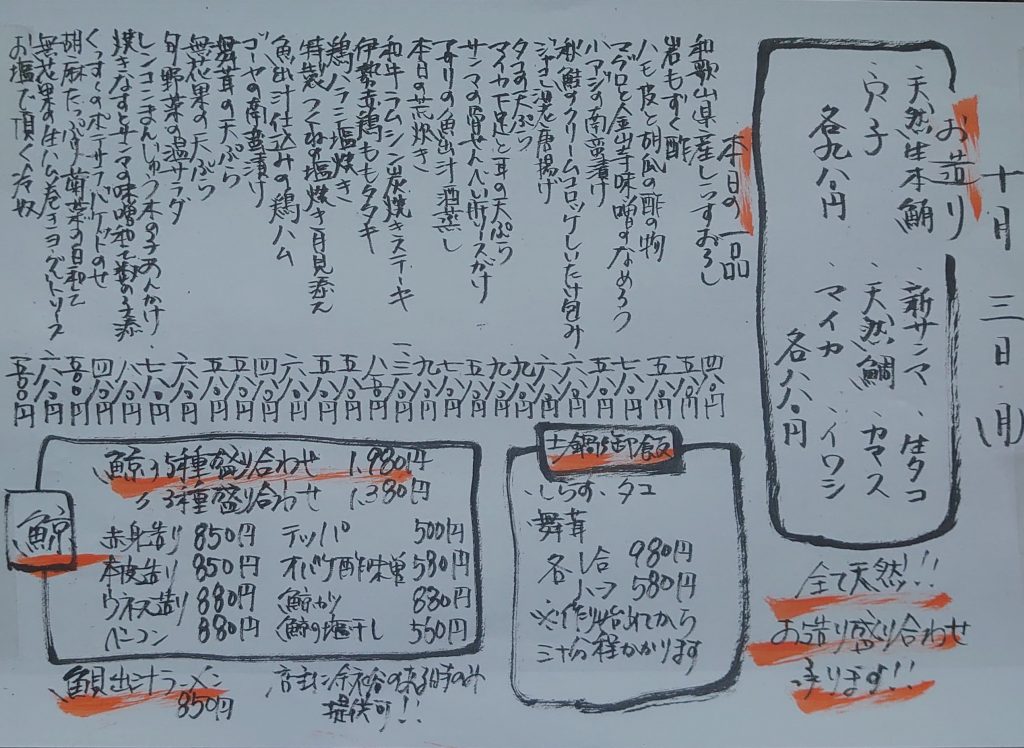 十月三日(月)
お造り
・天然生本鮪
・穴子
各九八〇円
・新サンマ ・生タコ
・天然鯛 ・カマス
・マイカ ・イワシ
各八八〇円
全て天然!!
お造り盛り合わせ
承ります!!
本日の一品
和歌山県産しらすおろし 四八〇円
岩もずく酢 五八〇円
ハモ皮と胡瓜の酢の物 五八〇円
マグロと金山寺味噌のなめろう 七八〇円
小アジの南蛮漬け 五八〇円
秋鮭のクリームコロッケしいたけ包み 六八〇円
唐揚げ 六八〇円
タコの天ぷら 九八〇円
マイカ下足と耳の天ぷら 九八〇円
サンマの骨せんべい肝ソースがけ 五八〇円
アサリの魚出汁酒蒸し 七八〇円
本日の荒炊き 九八〇円
和牛ラムシン炭焼きステーキ
伊勢赤鶏ももタタキ
鶏ハラミ塩焼き 五八〇円
特製つくねの塩焼き月見添え 五八〇円
魚出汁仕込みの鶏ハム 六八〇円
ゴーヤの南蛮漬け 四八〇円
舞茸の天ぷら 五八〇円
無花果の天ぷら 五八〇円
旬野菜の温サラダ 六八〇円
レンコンまんじゅう木の子あんかけ 七八〇円
焼きなすとサンマの味噌和え 八八〇円
くんすものポテサラバケットのせ 四八〇円
胡麻たっぷり菊菜の白和え 五八〇円
無花果の生ハム巻きヨーグルトソース 六八〇円
お塩で頂く冷奴 五〇〇円
土鍋御飯
・しらす・タコ
舞茸
各 一合 980円
ハーフ 580円
※作り始めてから
三十分程かかります
鯨
鯨の5種盛り合わせ 1,980円
〃 3種盛り合わせ 1,380円
赤身造り 850円 テッパ 500円
本皮造り 850円 オバケ酢味噌 580円
ウネス造り 880円 鯨カツ 880円
ベーコン 880円 鯨の塩干し 550円
魚貝出汁ラーメン
850円
店主に余裕の有る時のみ
提供可!!